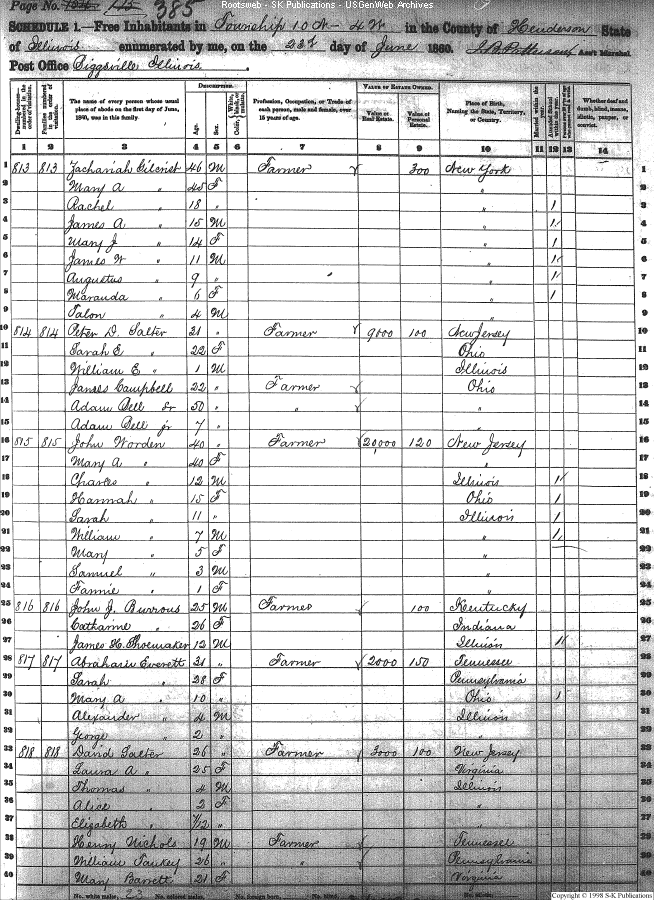 Rootsweb - SK Publications - USGenWeb Archives
Page No. 385
SCHEDULE 1.—Free Inhabitants in Township 10 N - 4 W in the County of Henderson State
of Illinois enumerated by me, on the 23d day of June 1860. Ass't Marshal
Post Office Biggsville Illinois.
DESCRIPTION. VALUE OF ESTATE OWNED.
Dwelling-houses—numbered in the order of visitation. Families numbered in the order of visitation. The name of every person whose usual place of abode on the first day of June, 1860, was in this family. Age. Sex. Color Profession, Occupation, or Trade of each person, male and female, over 15 years of age. Value of Real Estate. Value of Personal Estate. Place of Birth, Naming the State, Territory, or Country. Married within the year. Attended School within the year. Whether deaf and dumb, blind, insane, idiotic, pauper, or convict.
1 2 3 4 5 6 7 8 9 10 11 12 13 14
1 813 813 Zachariah Gilcrist 46 M Farmer 300 New York 1
2 Mary A " 45 F " 2
3 Rachel " 18 " " 1 3
4 James A " 15 M " 1 4
5 Mary J " 14 F " 1 5
6 James W " 11 M " 1 6
7 Augustus " 9 " " 1 7
8 Maranda " 6 F " 1 8
9 Talon " 4 M " 9
10 814 814 Peter D. Salter 31 " Farmer 9000 100 New Jersey 10
11 Sarah E " 22 F Ohio 11
12 William E " 1 M Illinois 12
13 James Campbell 22 " Farmer Ohio 13
14 Adam Bell Sr 50 " " " 14
15 Adam Bell jr 7 " " 15
16 815 815 John Worden 40 " Farmer 20,000 120 New Jersey 16
17 Mary A " 40 F " 17
18 Charles " 12 M Illinois 1 18
19 Hannah " 15 F Ohio 1 19
20 Sarah " 11 " Illinois 1 20
21 William " 7 M " 1 21
22 Mary " 5 F " 22
23 Samuel " 3 M " 23
24 Fannie " 1 F " 24
25 816 816 John J. Burrous 25 M Farmer 100 Kentucky 25
26 Catharine " 26 F Indiana 26
27 James H. Shoemaker 12 M Illinois 1 27
28 817 817 Abraham Everett 31 " Farmer 2000 150 Tennessee 28
29 Sarah " 28 F Pennsylvania 29
30 Mary A " 10 " Ohio 1 30
31 Alexander " 4 M Illinois 31
32 George " 2 " " 32
33 818 818 David Salter 26 " Farmer 3000 100 New Jersey 33
34 Laura A " 25 F Virginia 34
35 Thomas " 4 M Illinois 35
36 Alice " 2 F " 36
37 Elizabeth " " " 37
38 Henry Nichols 19 M Farmer Tennessee 38
39 William 26 " " Pennsylvania 39
40 Mary Barrett 21 F Virginia 40
No. white males, 23 No. colored males, No. foreign born, No. blind,
Copyright © 1998 S-K Publications